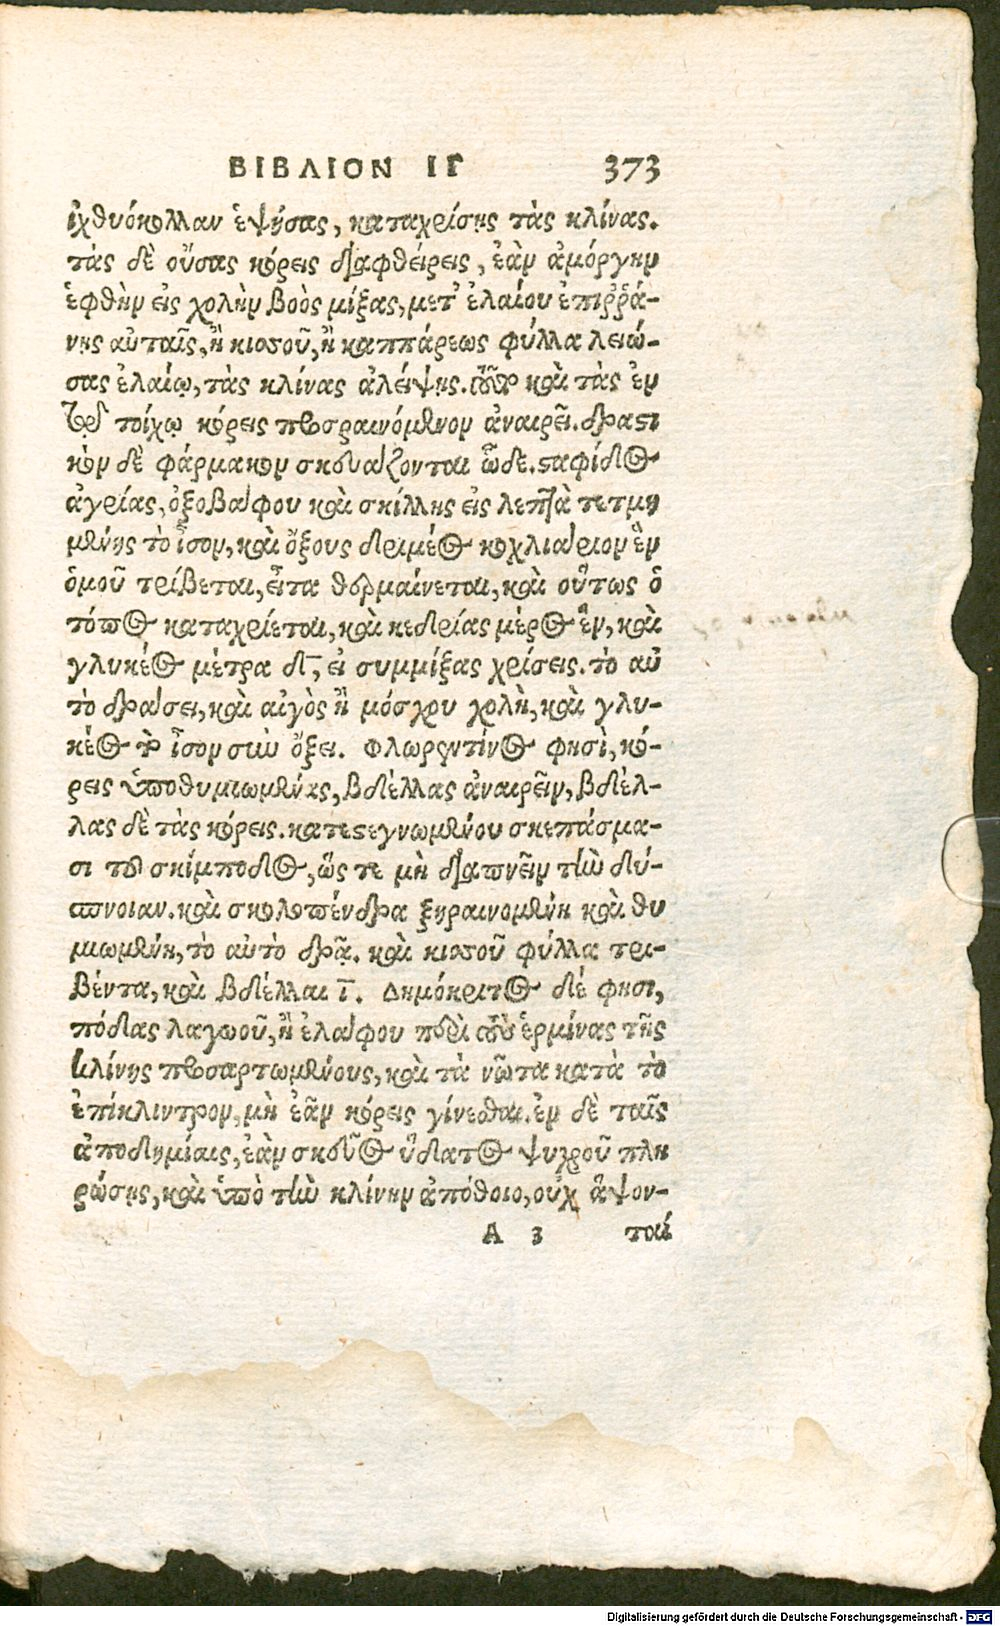 ΒΙΒΛΙΟΝ ΙΓ 373
ἰχθυόκολλαν ἑψήσας, καταχρίσῃς τὰς κλίνας.
τὰς δὲ οὔσας κόρεις διαφθείρεις, ἐὰν ἀμόργην
ἑφθὴν εἰς χολὴν βοὸς μίξας, μετ' ἐλαίου ἐπιῤῥά-
νῃς αὐταῖς, ἢ κισσοῦ, ἢ καππάρεως φύλλα λειώ-
σας ἐλαίῳ, τὰς κλίνας ἀλείψῃς. τοῦτο καὶ τὰς ἐν
τῷ τοίχῳ κόρεις προσραινόμενον ἀναιρεῖ. δραστι
κὸν δὲ φάρμακον σκευάζονται ὧδε. σταφίδος
ἀγρίας, ὀξοβάφου καὶ σκίλλης εἰς λεπτὰ τετμη
μένης τὸ ἶσον, καὶ ὄξους δριμέος κοχλιάριον ἓν
ὁμοῦ τρίβεται, εἶτα θερμαίνεται, καὶ οὕτως ὁ
τόπος καταχρίεται, καὶ κεδρίας μέρος ἓν, καὶ
γλυκέος μέτρα δ̅, εἰ συμμίξας χρίσεις. τὸ αὐ
τὸ δράσει, καὶ αἰγὸς ἢ μόσχου χολὴ, καὶ γλυ-
κέος τὸ ἶσον σὺν ὄξει. Φλωρεντίνος φησὶ, κό-
ρεις ὑποθυμιωμένας, βδέλλας ἀναιρεῖν, βδέλ-
λας δὲ τὰς κόρεις. κατεστεγνωμένου σκεπάσμα-
σι τοῦ σκίμποδος, ὥς τε μὴ διαπνεῖν τὴν δύ-
σπνοιαν. καὶ σκολοπένδρα ξηραινομένη καὶ θυ
μιωμένη, τὸ αὐτὸ δρᾷ. καὶ κισσοῦ φύλλα τρι-
βέντα, καὶ βδέλλαι ι̅. Δημόκριτος δέ φησι,
πόδας λαγωοῦ, ἢ ἐλάφου περὶ τοὺς ἑρμίνας τῆς
κλίνης προσαρτωμένους, καὶ τὰ νῶτα κατὰ τὸ
ἐπίκλιντρον, μὴ ἐᾶν κόρεις γίνεσθαι. ἐν δὲ ταῖς
ἀποδημίαις, ἐὰν σκεῦος ὕδατος ψυχροῦ πλη
ρώσῃς, καὶ ὑπὸ τὴν κλίνην ἀπόθοιο, οὐχ ἅψον-
A 3 ταί
Digitalisierung gefördert durch die Deutsche Forschungsgemeinschaft - DFG